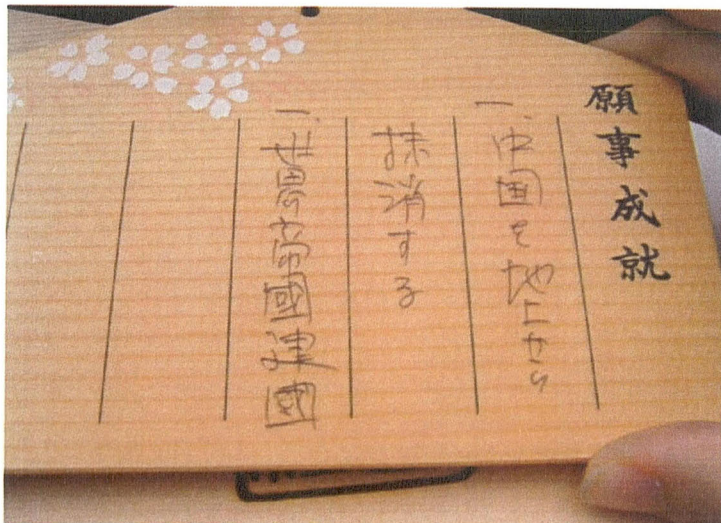 願事成就
一、中国を地上から
抹消する
一、世界帝國建國